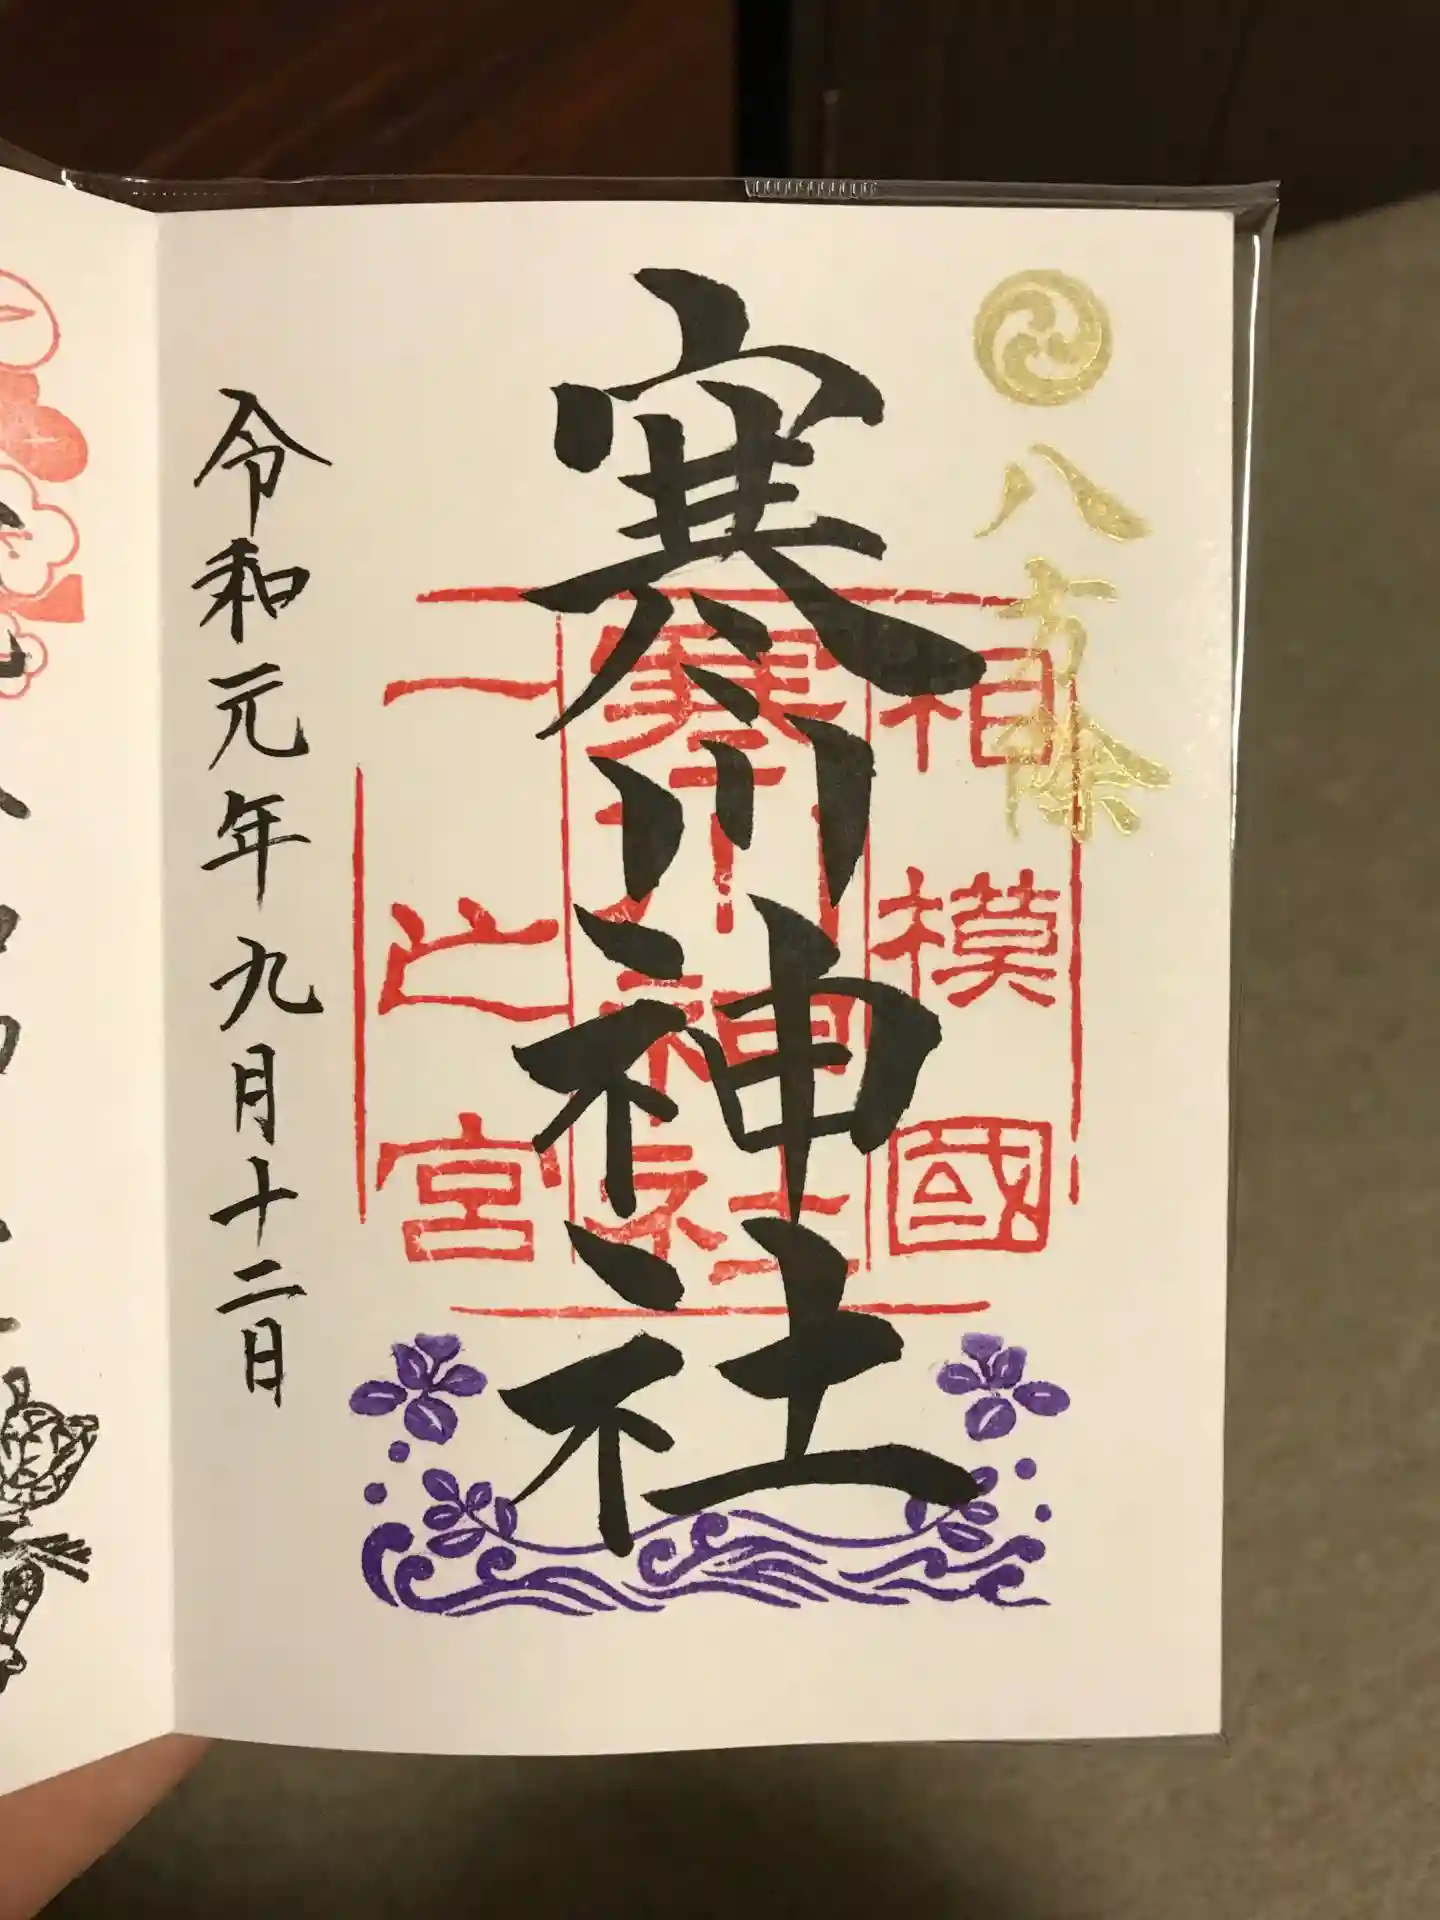 八方除
相模國
寒川神社
一之宮
寒川神社
令和元年九月十二日